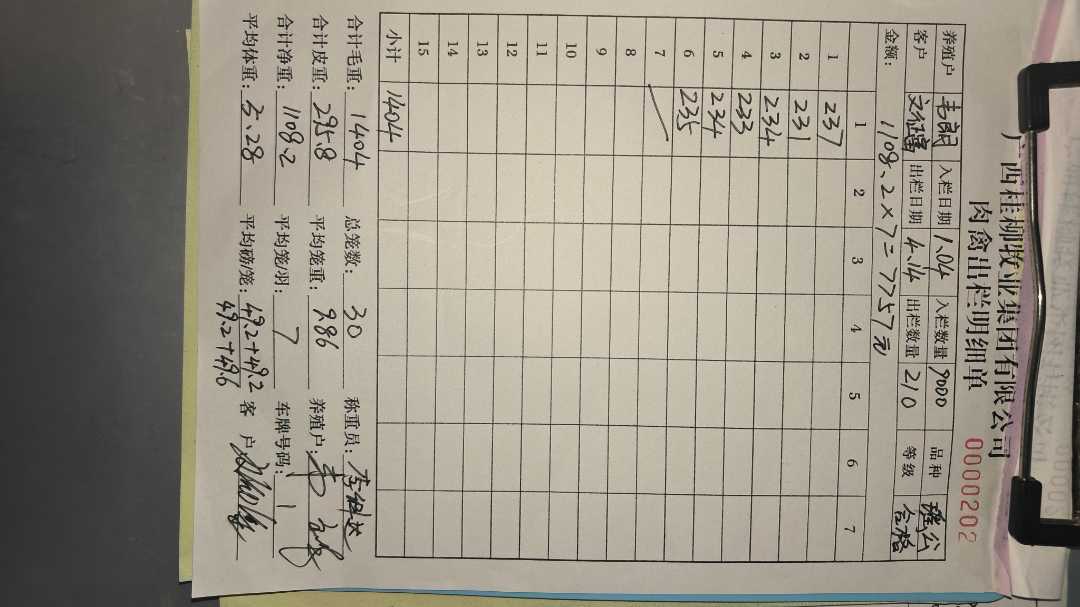 广西桂柳牧业集团有限公司
肉禽出栏明细单
0000202
养殖户 韦朗 入栏日期 1、04 入栏数量 9000 品种 瑶公
客户 文征富 出栏日期 4、14 出栏数量 210 等级 合格
金额： 1108、2×7=7757元
1 2 3 4 5 6 7
1 237
2 231
3 234
4 233
5 234
6 235
7
8
9
10
11
12
13
14
15
小计 1404
合计毛重：1404 总笼数：30 称重员：李
合计皮重：295.8 平均笼重：9.86 养殖户：韦
合计净重：1108.2 平均笼/羽：7 车牌号码：1
平均体重：5、28 平均磅/笼：49.2+49.2 客 户
49.2+49.6